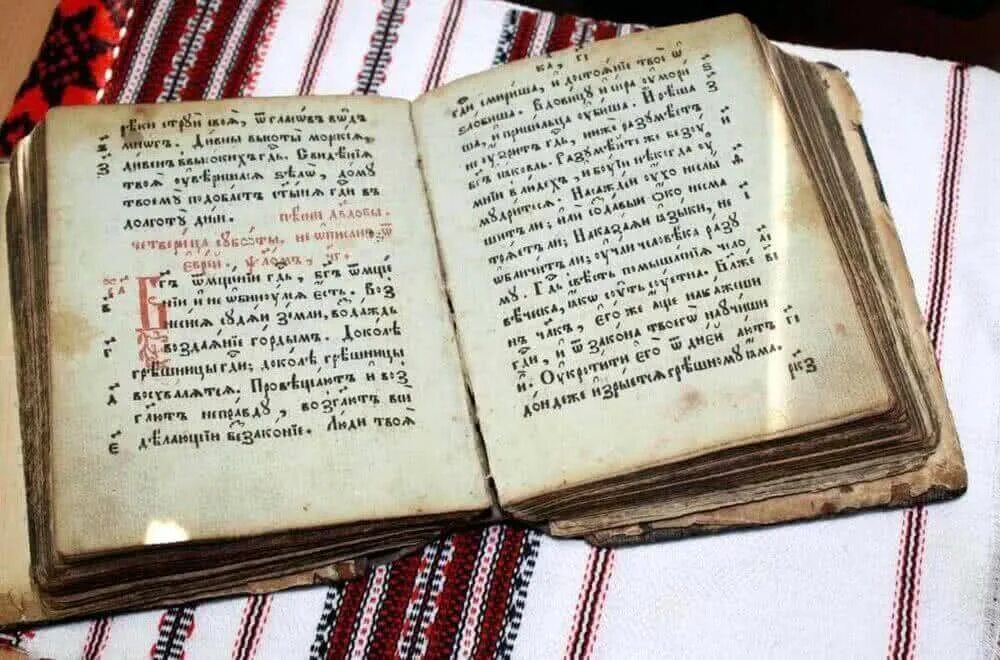 рѣки струи своѧ̀, ѿ гласѡвъ вѡдъ
мнѡгъ. Дивны высоты морскїѧ,
дивенъ ввысокихъ гдⷭ҇ь. Свидѣнїѧ
твоѧ̀ ѹвѣришасѧ ѕѣлѡ, дому
твоему подобаетъ ст҃ынѧ гдⷭ҇и въ
долготѹ дн҃їи. пѣсни дв҃довы.
четверица сѹбѡты, не ѡписанъ ѿ
еврей. ѱалѡмъ, ч҃г.
Бг҃ъ ѿмщенїи гдⷭ҇ь, бг҃ъ ѿмще
нїи и не ѡбинѹлсѧ есть. Воз
несисѧ сѹдѧи земли, воздаждь
воздаѧнїе гордымъ. Доколѣ
грѣшницы гдⷭ҇и; доколѣ грѣшницы
восхвалѧтсѧ. Провѣщаютъ и воз
гл҃ютъ неправду, возгл҃ютъ вси
дѣлающїи беззаконїе. Люди твоѧ̀
гдⷭ҇и смириша, и достоѧнїе твоѐ ѡ
злобиша. Вдовицѹ и сира ѹмори
ша, и пришельца ѹбиша. И рѣша
не ѹзритъ гдⷭ҇ь, ниже разумѣетъ
бг҃ъ їаковль. Разумѣйте же безѹ
мнїи в людехъ, и бѹїи нѣкогда ѹ
мѹдритесѧ. Насаждеи ѹхо не слы
шитъ ли; или создавыи ѻко не сма
трѧетъ ли; Наказаѧи ѧзыки, не
ѡбличитъ ли; ѹчаи человѣка разѹ
мѹ. Гдⷭ҇ь свѣсть помышленїѧ чело
вѣческа, ꙗкѡ сѹть сѹетна. Блаженъ
чл҃къ, егоже аще накажеши
гдⷭ҇и, и ѿ закона твоегѡ наѹчиши
и. Оукротити его ѿ днеи лютъ
дондеже изрыетсѧ грѣшномѹ ꙗма.
рк҃з